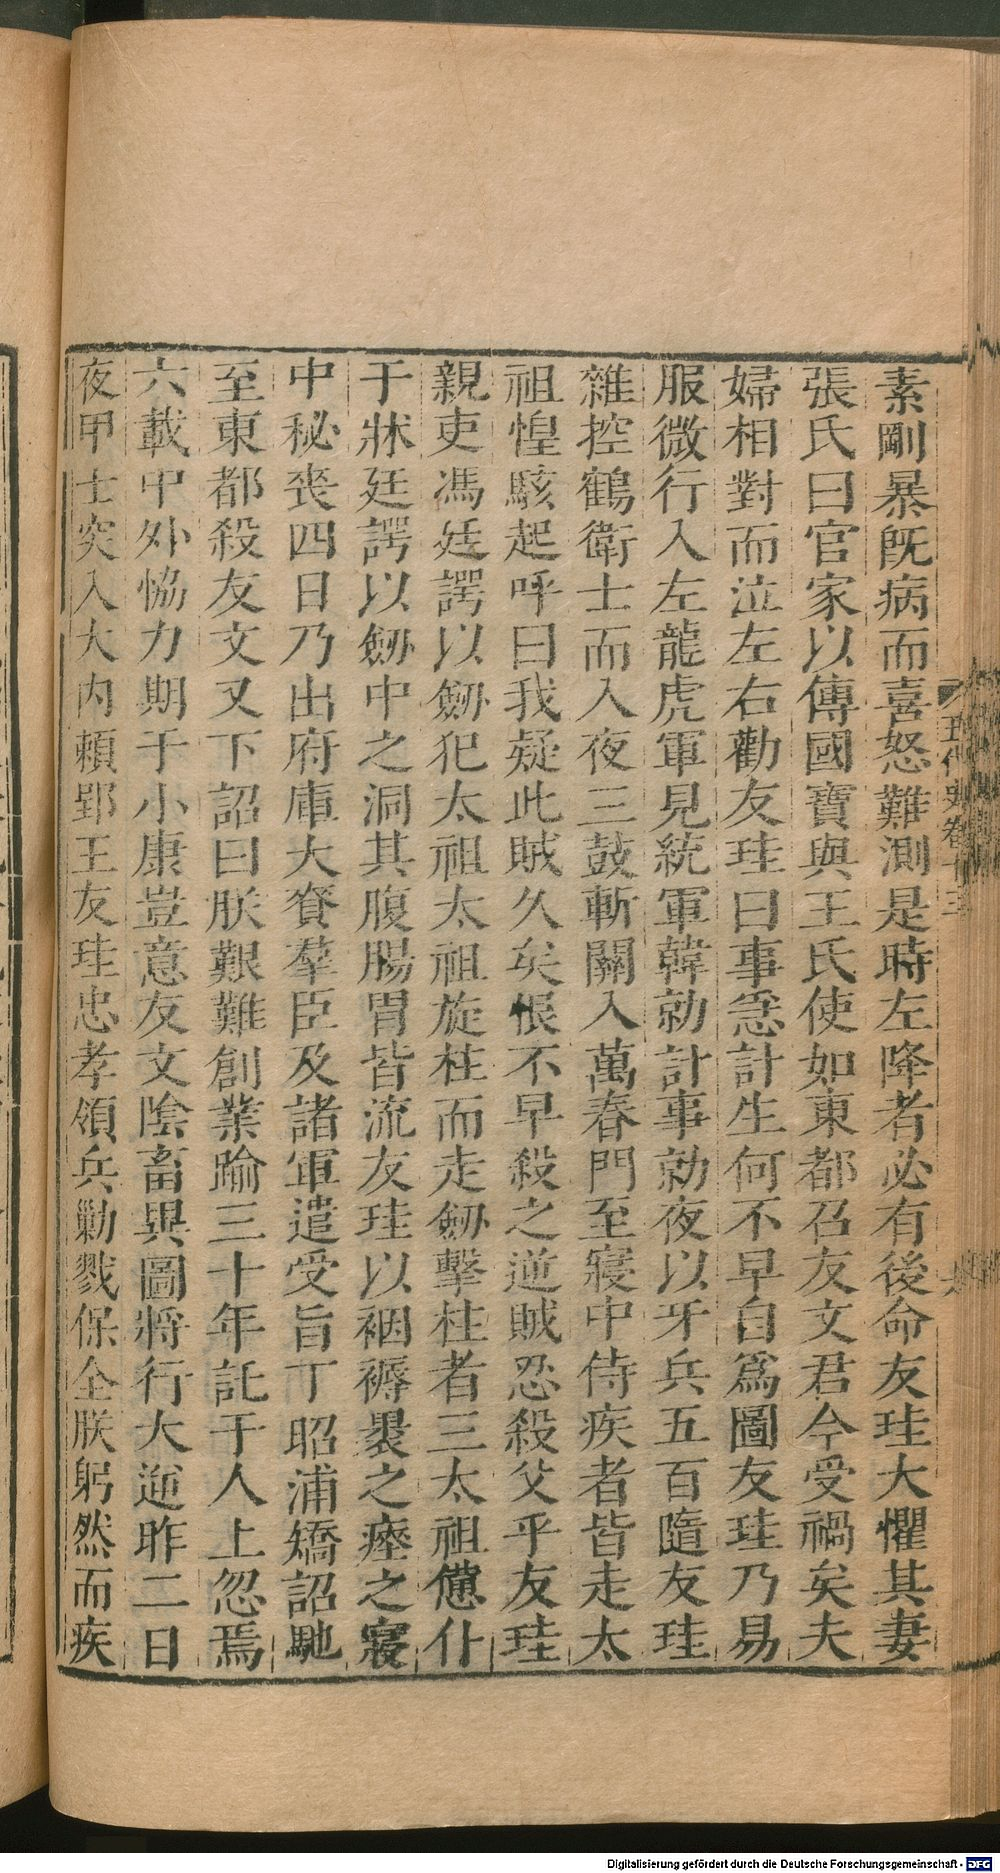 素剛暴既病而喜怒難測是時左降者必有後命友珪大懼其妻
張氏曰官家以傳國寶與王氏使如東都召友文君今受禍矣夫
婦相對而泣左右勸友珪曰事急計生何不早自爲圖友珪乃易
服微行入左龍虎軍見統軍韓勍計事勍夜以牙兵五百隨友珪
雜控鶴衛士而入夜三鼓斬關入萬春門至寢中侍疾者皆走太
祖惶駭起呼曰我疑此賊久矣恨不早殺之逆賊忍殺父乎友珪
親吏馮廷諤以劒犯太祖太祖旋柱而走劒擊柱者三太祖憊仆
于牀廷諤以劒中之洞其腹腸胃皆流友珪以裀褥裹之瘞之寢
中秘喪四日乃出府庫大賚羣臣及諸軍遣受旨丁昭浦矯詔馳
至東都殺友文又下詔曰朕艱難創業踰三十年託于人上忽焉
六載中外恊力期于小康豈意友文陰畜異圖將行大逆昨二日
夜甲士突入大內賴郢王友珪忠孝領兵勦戮保全朕躬然而疾
五代史卷十三
六
Digitalisierung gefördert durch die Deutsche Forschungsgemeinschaft - DFG